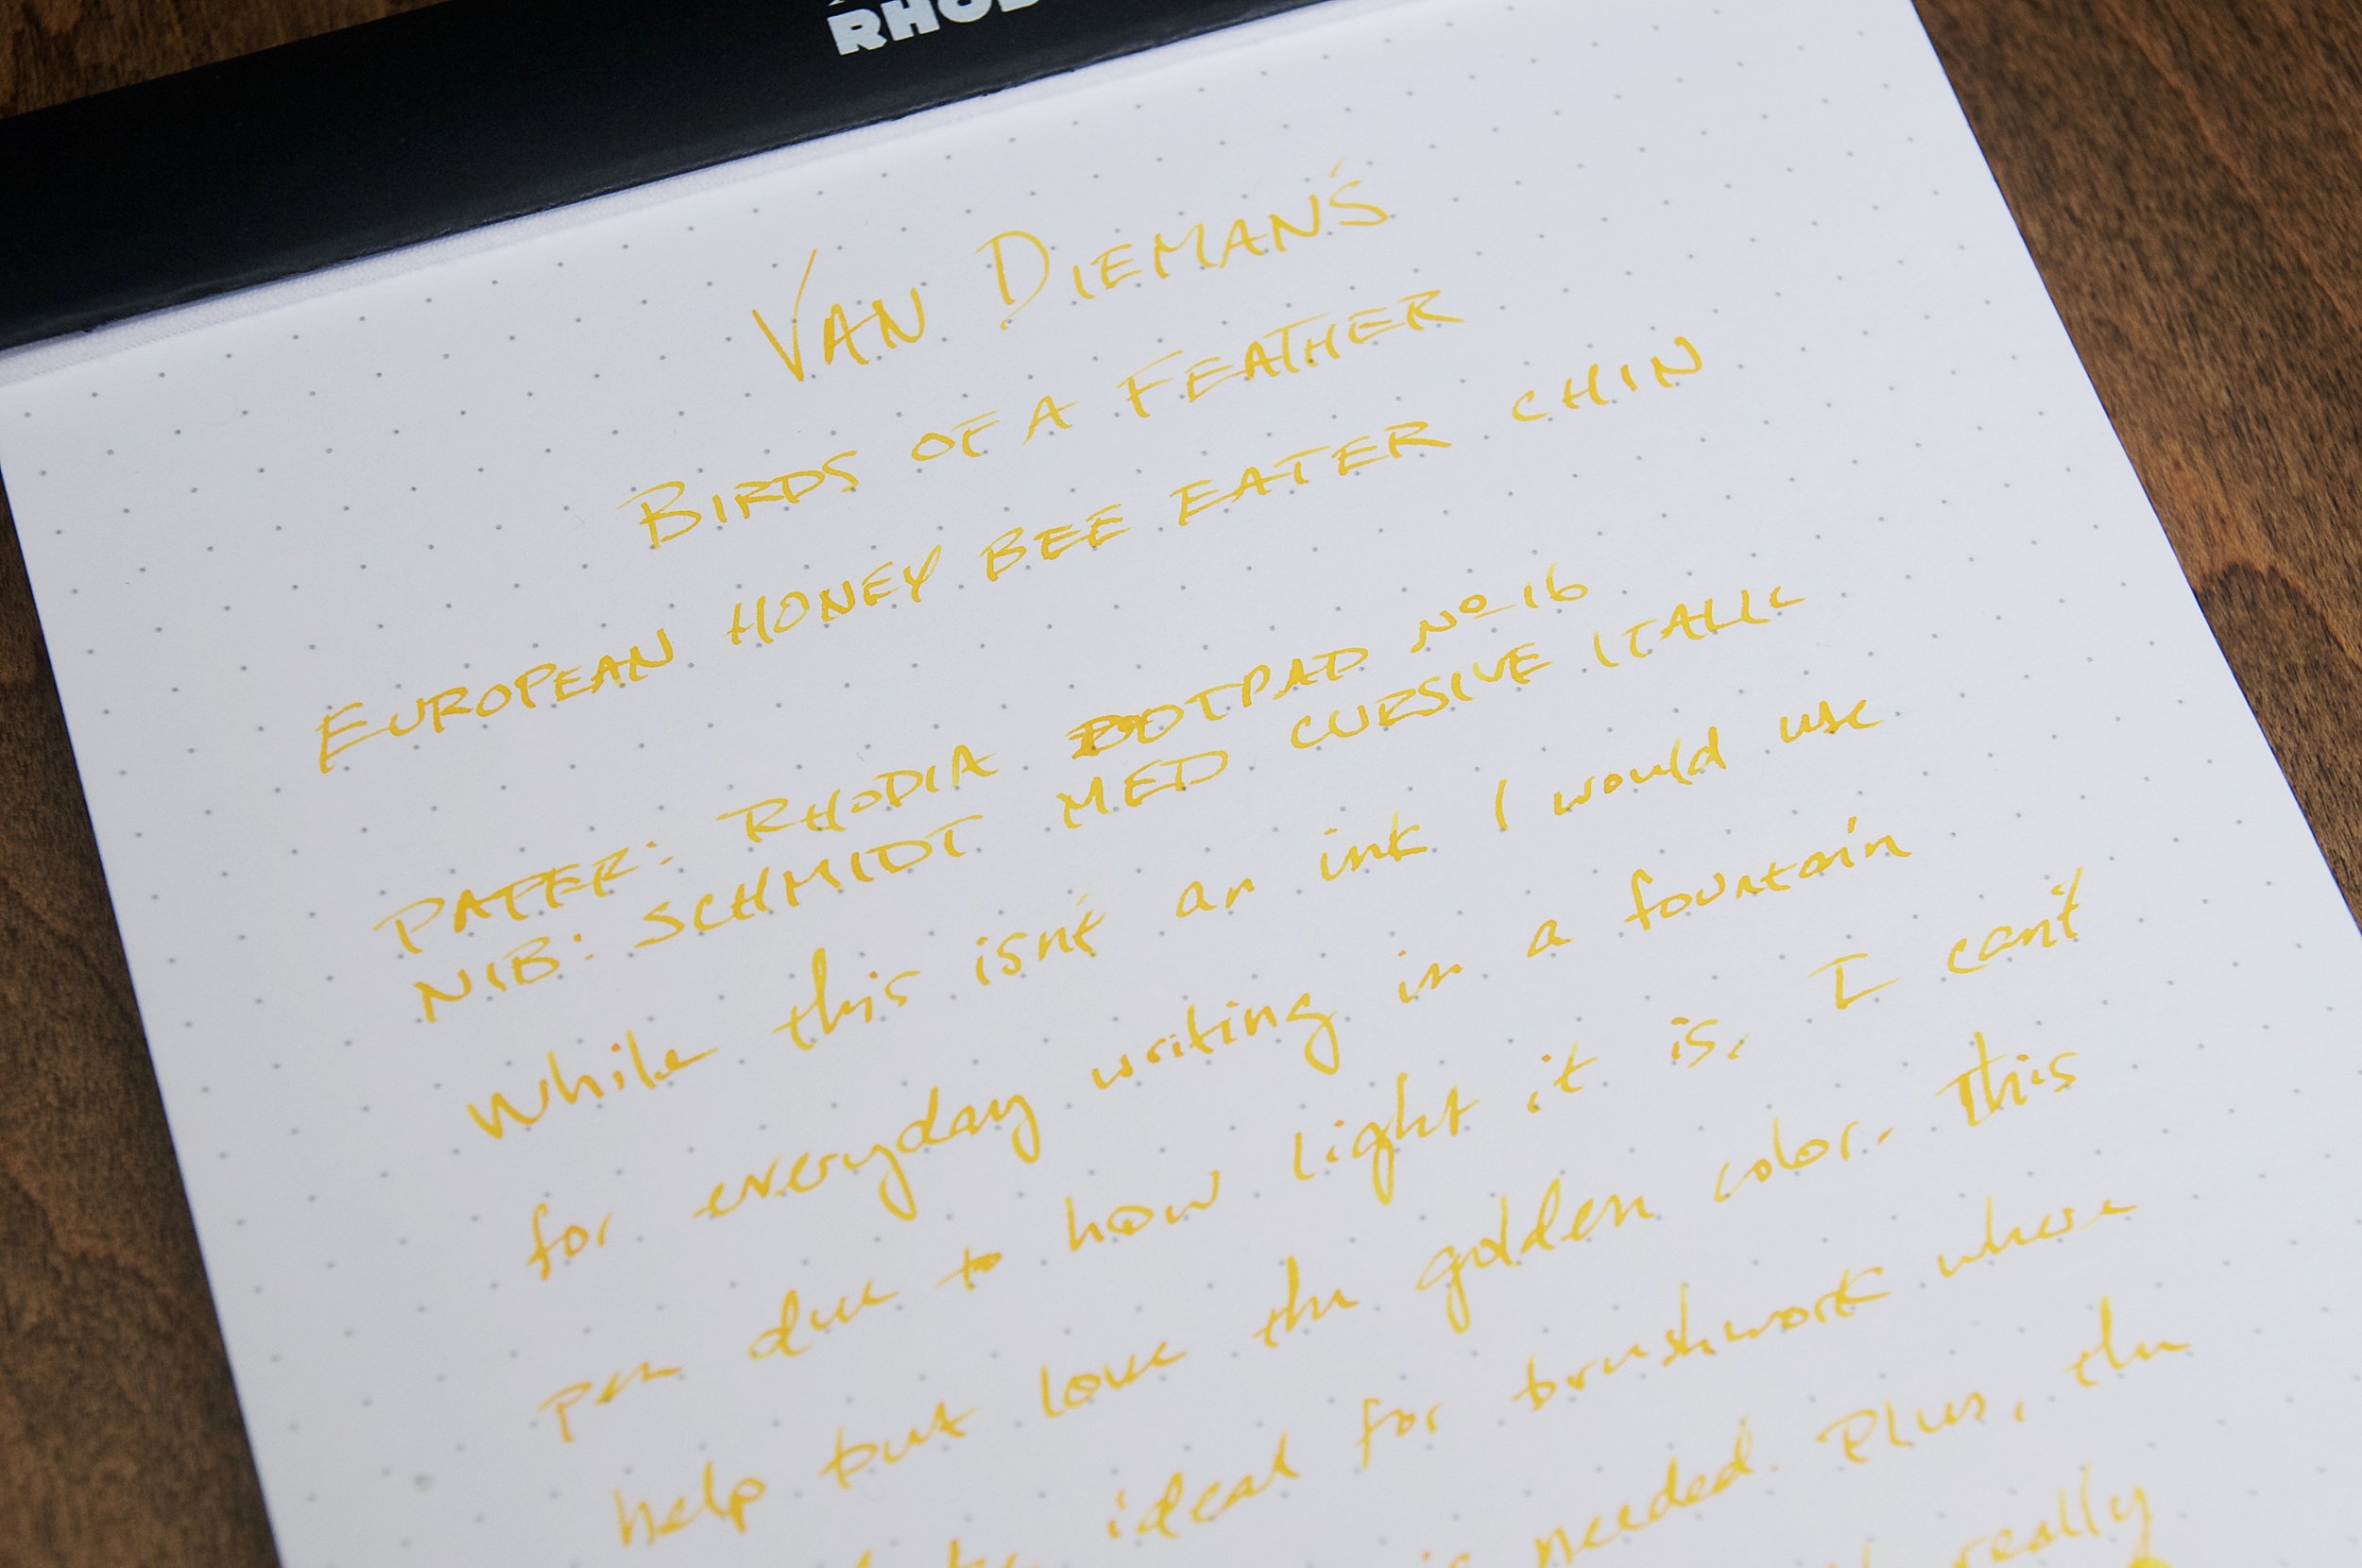 RHOD
VAN DIEMAN'S
BIRDS OF A FEATHER
EUROPEAN HONEY BEE EATER CHIN
PAPER: RHODIA DOTPAD Nº 16
NIB: SCHMIDT MED CURSIVE ITALIC
While this isn't an ink I would use
for everyday writing in a fountain
pen due to how light it is, I can't
help but love the golden color. This
ideal for brushwork where
is needed. Plus, the
really